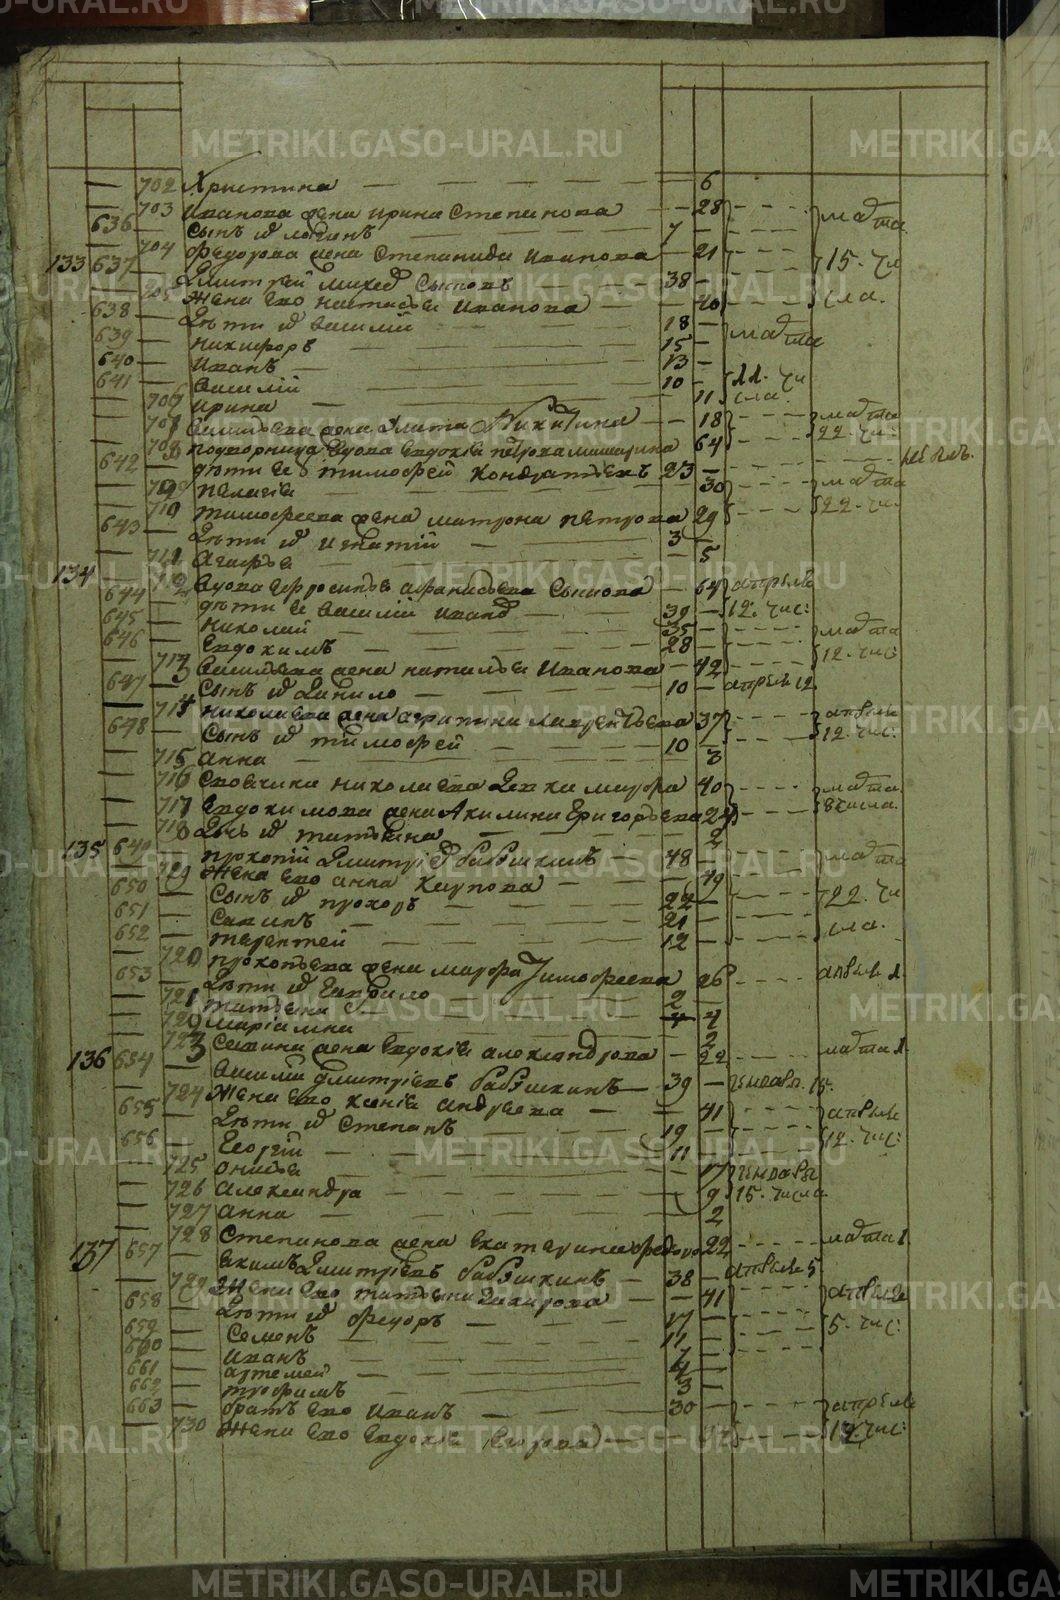 702 Христина — 6
703 Иванова жена Ирина Степанова — 28
636 — сынъ Логинъ — 7 — марта
704 Федорова жена Степанида Иванова — 21
133 637 — Дмитрей Сыновъ 38 — 15. чи
705 Жена ево Настасья Иванова — 40 сла.
638 — Дѣти Василий 18 —
639 — Никифоръ 15 — марта
640 — Иванъ 13 —
641 — Василий 10 — 11. чи
706 Ирина — 11 сла.
707 жена Улита Никитина — 18 марта
708 вдова Евдокія Петрова 64 22. чи:
642 — дѣти ее Тимофей Кондратьевъ 23 —
709 Пелагія — 30 марта
710 Тимофеева жена Матрона Петрова 29 22. чи:
643 — Дѣти Игнатий 3 —
711 Агафья — 5
134 712 Вдова Ефросинья Афанасьева — 64 апреля
644 — дѣти ее Василий 39 — 12. чис:
645 — Николай 35 — марта
646 — Евдокимъ 28 — 12. чис:
713 Васильева жена Наталья Иванова — 42
647 — Сынъ Данило 10 — апреля 12
714 Николаева жена Лаврентьева 37 апреля
648 — Сынъ Тимофей 10 — 12. чис:
715 Анна — 3
716 Николаева Девка Марфа 40 марта
717 Евдокимова жена Акилина Григорьева 24 8 числа.
718 Дочь Татьяна — 2
135 649 — Прокопий Дмитріевъ Бабушкинъ — 48 — марта
719 Жена ево Анна Карпова — 49
650 — Сынъ Прохоръ 22 — 22. чи
651 — 21 — сла.
652 — Терентей 12 —
720 Прокопьева жена Марфа Тимофеева 26 апреля 1
653 — Дѣти Гаврило 2 —
721 Татьяна 4
722 Маріамна — 2
723 жена Евдокія Александрова — 22 марта 1
136 654 — Василий Дмитріевъ Бабушкинъ — 39 — генваря 15.
724 Жена ево Ксения Андреева — 41 апреля
655 — Дѣти Степанъ 19 — 12. чис:
656 — Георгий 11 —
725 Онисья — 17 генваря
726 Александра — 9 15. числа
727 Анна — 2
728 Степанова жена Екатерина Федоро 22 марта 1
137 657 — Екимъ Дмитріевъ Бабушкинъ — 38 — апреля 5
729 Жена ево Татьяна Захарова — 41 апреля
658 — Дѣти Федоръ 17 — 5. чис:
659 — Семенъ 11 —
660 — Иванъ 7 —
661 — Артемей 4 —
662 — Трофимъ 3 —
663 — братъ ево Иванъ 30 — апреля
730 Жена ево Евдокія Егорова — 12. чис:
METRIKI.GASO-URAL.RU